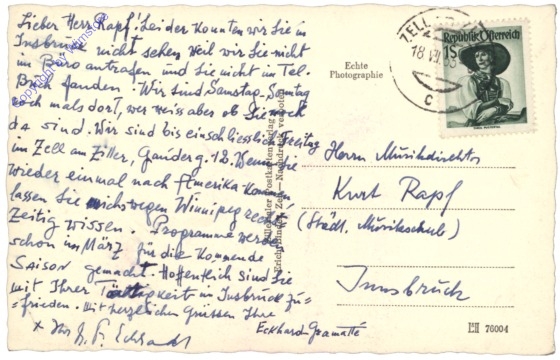 Lieber Herr Rapf! Leider konnten wir Sie in
Insbruck nicht sehen weil wir Sie nicht
im Büro antrafen und Sie nicht im Tel.
Buch fanden. Wir sind Samstag-Sonntag
noch mals dort, wer weiss aber ob Sie noch
da sind. Wir sind bis einschliesslich Freitag
in Zell am Ziller, Gauderg. 12. Wenn Sie
wieder einmal nach Amerika kommen
lassen Sie mich wegen Winnipeg recht
Zeitig wissen. Programme werden
schon im März für die Kommende
SAISON gemacht. Hoffentlich sind Sie
mit Ihrer Tätigkeit in Insbruck zu=
=frieden. Mit herzlichen Grüssen Ihre
Eckhard-Gramatté
Echte
Photographie
ZELL
18 VII
c
Republik Österreich
1S
Herrn Musikdirektor
Kurt Rapf
(Städt. Musikschule)
Innsbruck
Zillertaler Postkartenverlag
Nachdruck verboten
76004